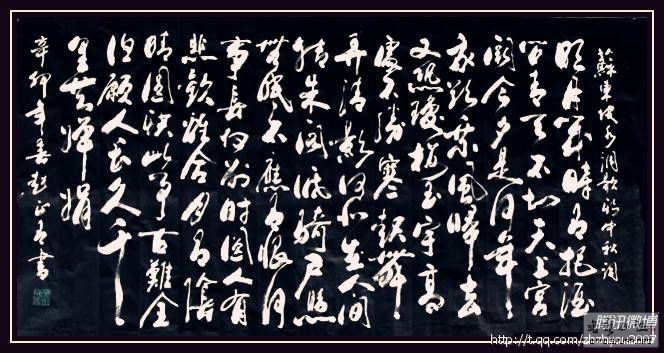 蘇東坡水調歌頭中秋詞
明月幾時有把酒
問青天不知天上宮
闕今夕是何年
我欲乘風歸去
又恐瓊樓玉宇高
處不勝寒起舞
弄清影何似在人間
轉朱閣低綺戶照
無眠不應有恨何
事長向別時圓人有
悲歡離合月有陰
晴圓缺此事古難全
但願人長久千
里共嬋娟
辛卯年春趙正有書
腾讯微博
http://t.qq.com/zhzhyou2007